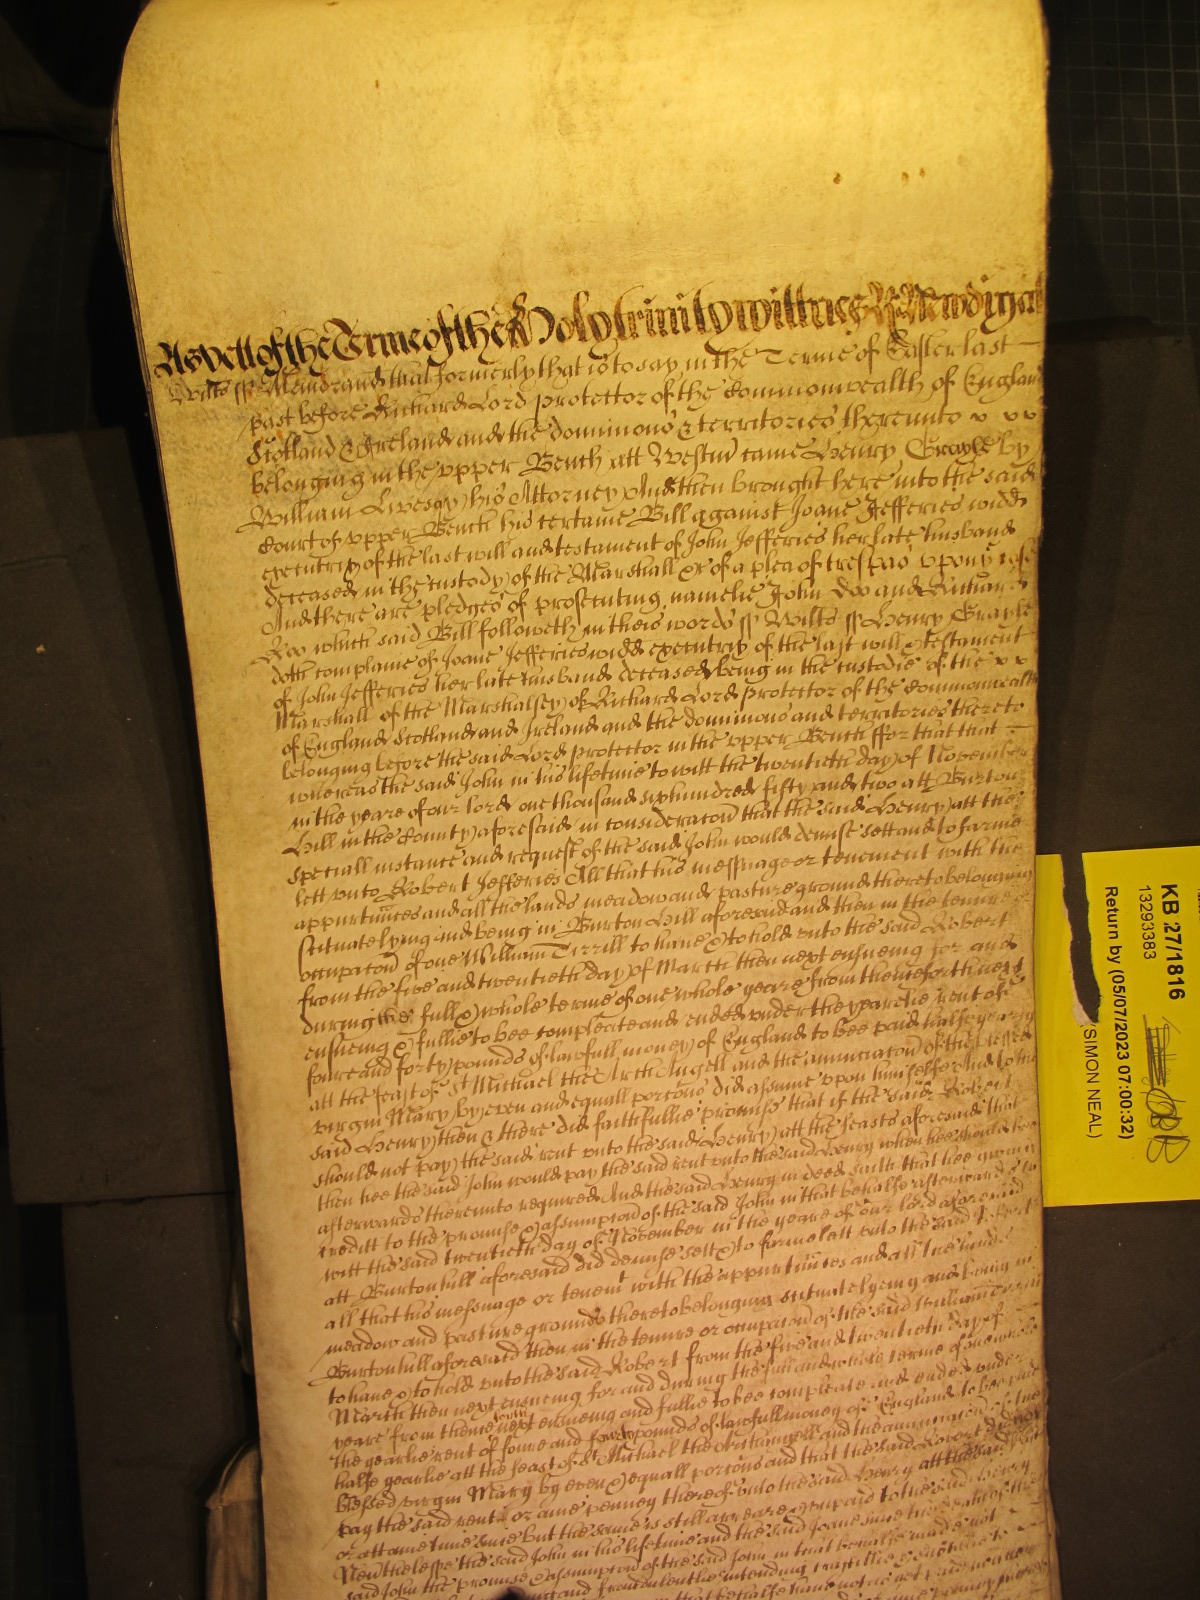 As yett of the Terme of the Holy Trinity Wittnes R: Newdigat
Wilts ss Memorand that formerly that is to say in the Terme of Easter last
past before Richard Lord protector of the Commonwealth of England
Scotland & Ireland and the dominions & territories thereunto
belonging in the upper Bench att Westm came Henry Grayle by
William Livesay his Attorney And then brought here into the said
Court of upper Bench his certaine Bill against Joane Jefferies widd
executrix of the last will and testament of John Jefferies her late husband
deceased in the custody of the Marshall &c of a plea of trespas upon ye case
And there are pledges of prosecuting namelie John Doo and Richard
Roo which said Bill followeth in theis words ss Wilts ss Henry Grayle
doth complaine of Joane Jefferies widd executrix of the last will & testament
of John Jefferies her late husband deceased being in the custodie of the
Marshall of the Marshalsey of Richard Lord protector of the Commonwealth
of England Scotland and Ireland and the dominions and territories thereto
belonging before the said Lord protector in the upper Bench ffor that that
whereas the said John in his lifetime to witt the twentieth day of November
in the yeare of our lord one thousand six hundred fifty and two att Burton
Hill in the County aforesaid in consideracon that the said Henry att the
speciall instance and request of the said John would demise sett and to farme
lett unto Robert Jefferies All that his messuage or tenement with the
appurtunces and all the lands meadow and pasture ground thereto belonging
situate lying and being in Burton Hill aforesaid and then in the tenure or
occupacon of one William Tirrill to have & to hold unto the said Robert
from the five and twentieth day of March then next ensueing for and
during the full & whole terme of one whole yeare from thenceforth next
ensueing & fullie to bee compleate and ended under the yearlie rent of
foure and forty pounds of lawfull money of England to bee paid halfe yearly
att the feast of St Michael the Arch Angell and the annunciacon of the blessed
virgin Mary by even and equall porcons did assume upon himselfe And to the
said Henry then & there did faithfullie promise that if the said Robert
should not pay the said rent unto the said Henry att the feasts aforesaid that
then hee the said John would pay the said rent unto the said Henry when hee should bee
afterwards thereunto required And the said Henry in deed saith that hee giving
creditt to the promise & assumpcon of the said John in that behalfe afterwards to
witt the said twentieth day of November in the yeare of our lord aforesaid
att Burtonhill aforesaid did demise sett & to farme lett unto the said Robert
all that his messuage or tenemt with the appurtunces and all the lands
meadow and pasture grounds thereto belonging situate lyeing and being in
Burtonhill aforesaid then in the tenure or occupacon of the said William Tirrill
to have & to hold unto the said Robert from the five and twentieth day of
March then next ensueing for and during the full and whole terme of one whole
yeare from thence forth next ensueing and fullie to bee compleate and ended under
the yearlie rent of foure and forty pounds of lawfull money of England to bee paid
halfe yearlie att the feast of St Michael the Archangell and the annunciacon of the
blessed virgin Mary by even & equall porcons and that the said Robert did not
pay the said rent or anie penney thereof unto the said Henry att the said
or att anie time since but the same is still arreare & unpaid to the said Henry
Neverthelesse the said John in his lifetime and the said Joane since the death of the
said John the promise & assumpcon of the said John in that behalfe made not
and fraudulentlie intending
KB 27/1816
13293383
Return by (05/07/2023 07:00:32)
(SIMON NEAL)